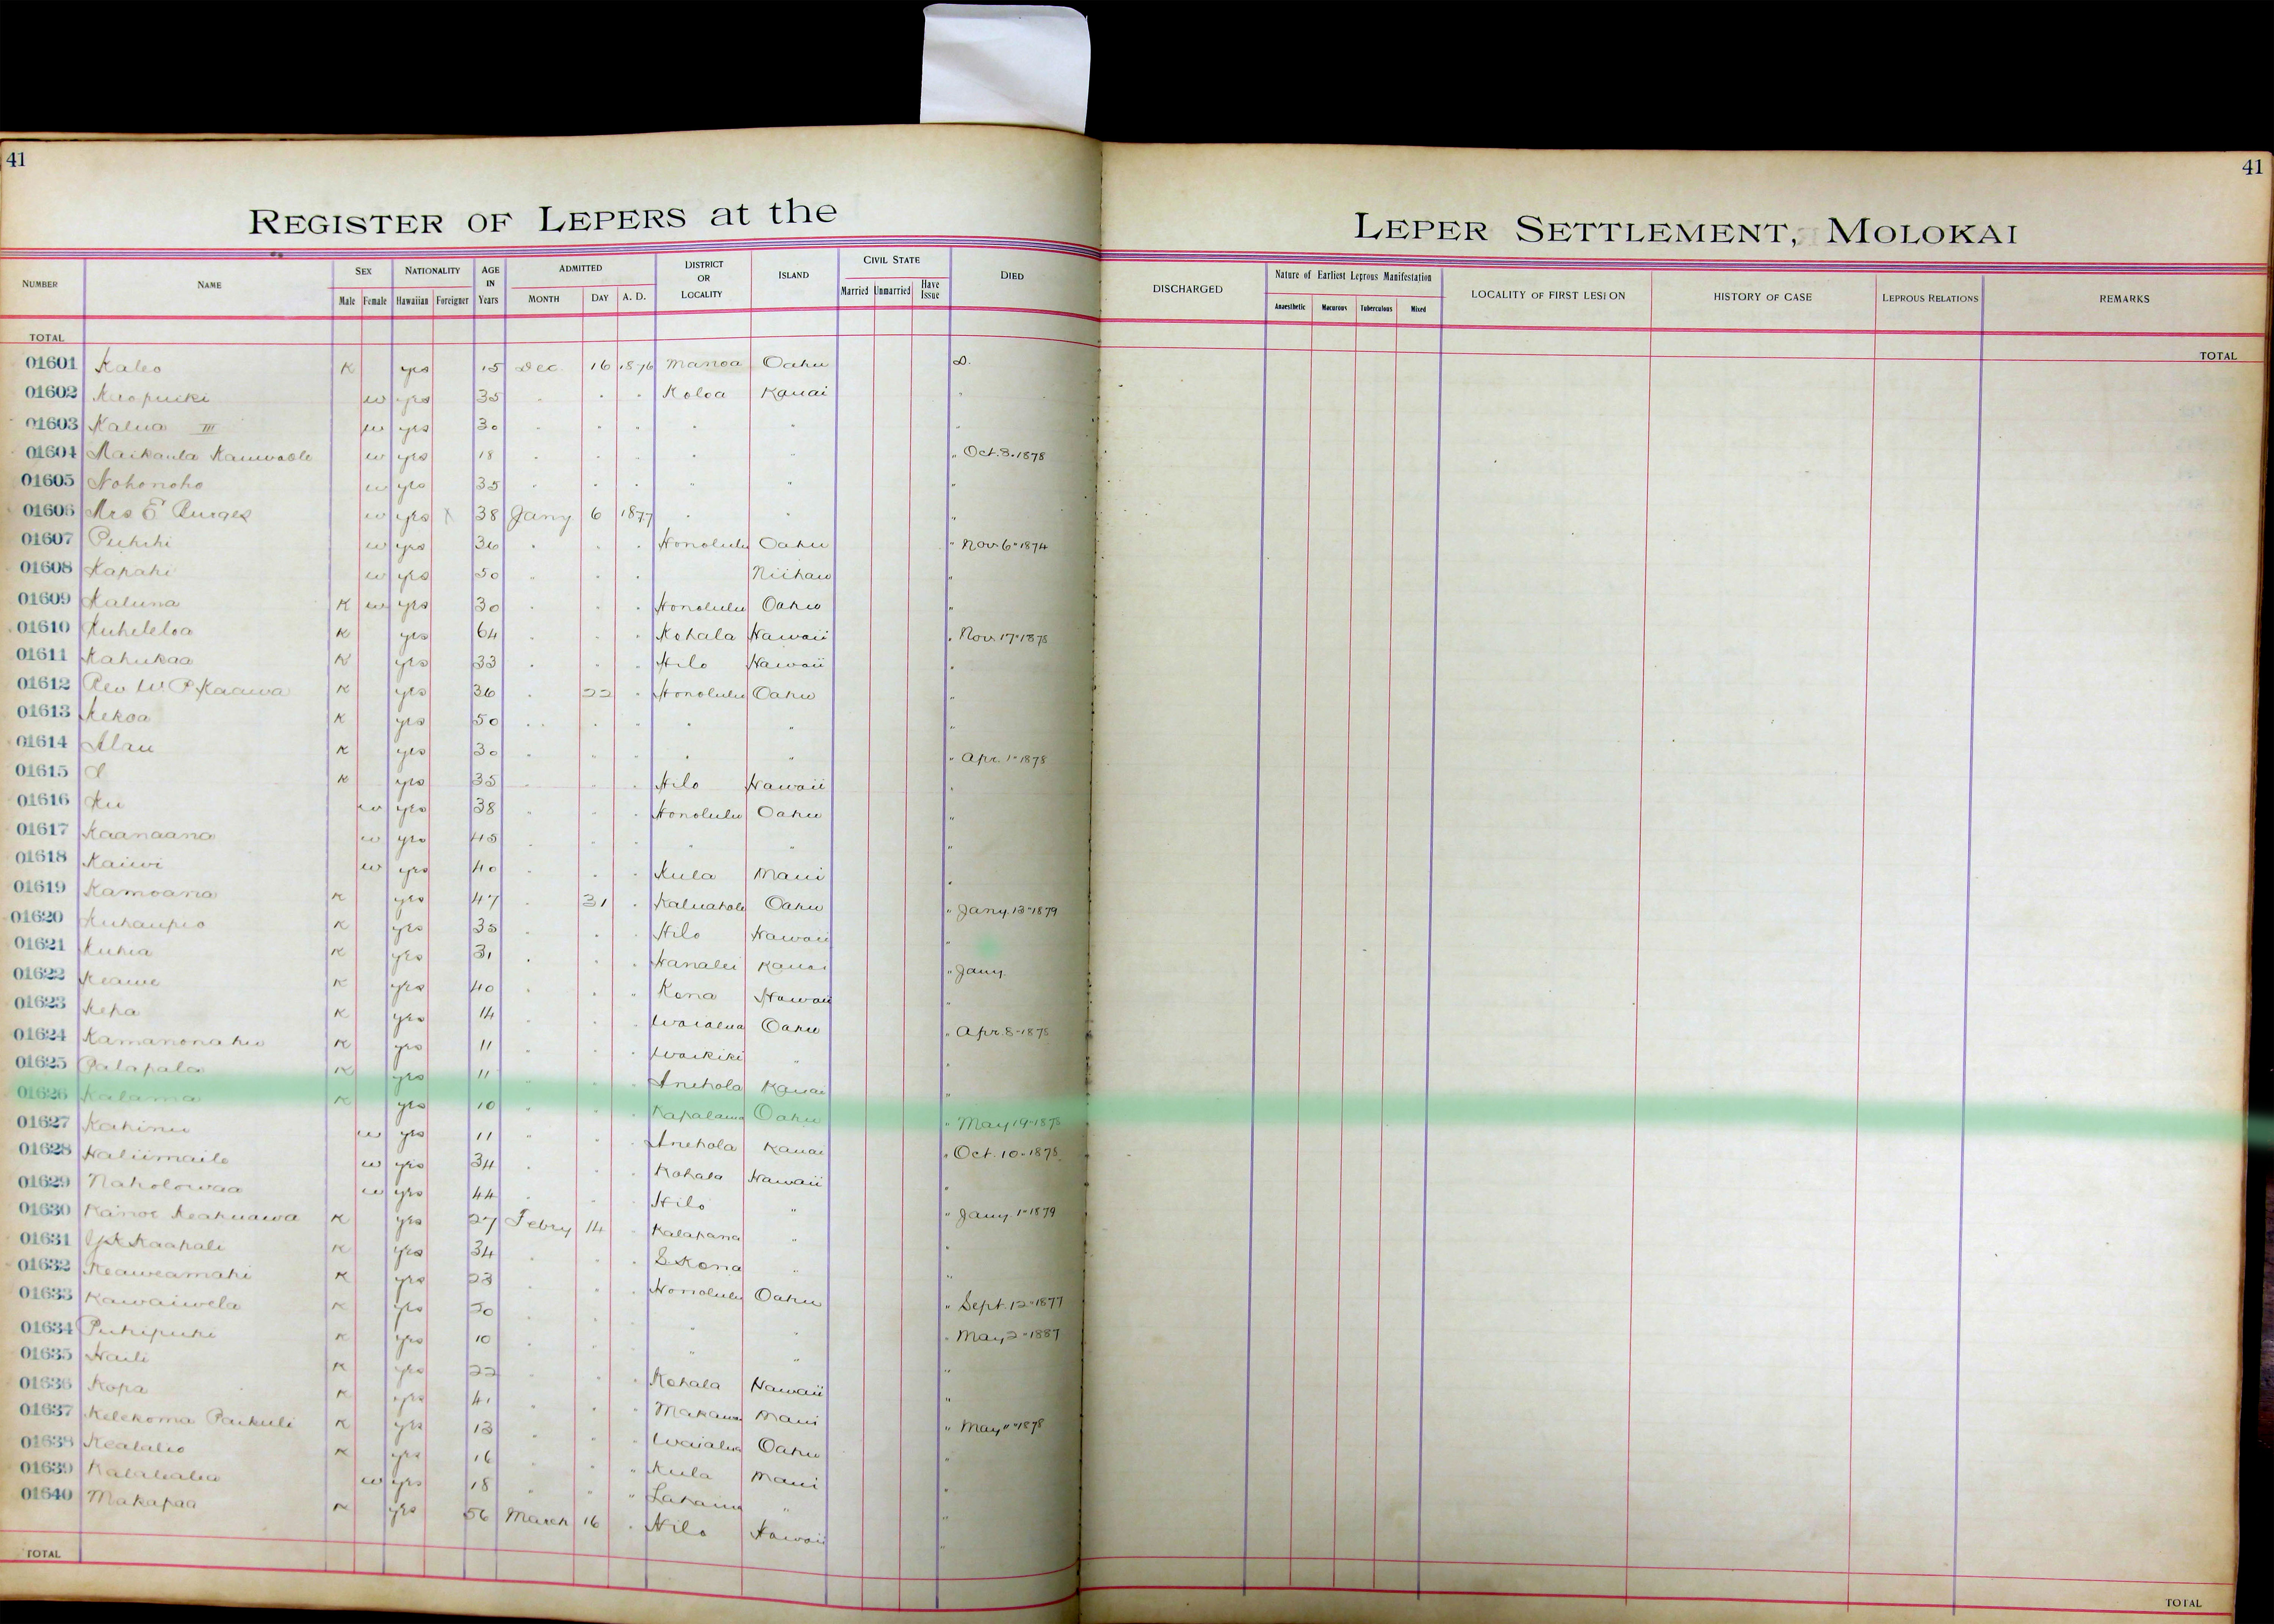 41
41
REGISTER OF LEPERS at the
LEPER SETTLEMENT, MOLOKAI
NUMBER NAME SEX Male Female NATIONALITY Hawaiian Foreigner AGE IN Years ADMITTED MONTH DAY A. D. DISTRICT OR LOCALITY ISLAND CIVIL STATE Married Unmarried Have Issue DIED
DISCHARGED Nature of Earliest Leprous Manifestation Anaesthetic Macurous Tuberculous Mixed LOCALITY OF FIRST LESION HISTORY OF CASE LEPROUS RELATIONS REMARKS
TOTAL
TOTAL
01601 Kaleo K yes 15 Dec. 16 1876 Manoa Oahu D.
01602 Keopuiki w yes 35 " " " Koloa Kauai "
01603 Kalua III w yes 30 " " " " " "
01604 Maikaula w yes 18 " " " " " " Oct. 3. 1878
01605 Nohonoho w yes 35 " " " " " "
01606 Mrs E Burges w yes X 38 Jany 6 1877 " " "
01607 Puhihi w yes 36 " " " Honolulu Oahu " Nov 6" 1874
01608 Kapahi w yes 50 " " " Niihau "
01609 Kaluna K w yes 30 " " " Honolulu Oahu "
01610 Kuheleloa K yes 64 " " " Kohala Hawaii " Nov 17" 1878
01611 Kahukaa K yes 33 " " " Hilo Hawaii "
01612 Rev W. P. Kaawa K yes 36 " 22 " Honolulu Oahu "
01613 Kekoa K yes 50 " " " " " "
01614 Alau K yes 30 " " " " " " Apr. 1" 1878
01615 K yes 35 " " " Hilo Hawaii "
01616 Ku w yes 38 " " " Honolulu Oahu "
01617 Kaanaana w yes 45 " " " " " "
01618 Kaiwi w yes 40 " " " Kula Maui "
01619 Kamoana K yes 47 " 31 " Oahu " Jany. 13" 1879
01620 Kuhaupio K yes 35 " " " Hilo Hawaii "
01621 Kuhia K yes 31 " " " Hanalei Kauai " Jany.
01622 Keawe K yes 40 " " " Kona Hawaii "
01623 Kepa K yes 14 " " " Waialua Oahu " Apr. 8" 1878
01624 K yes 11 " " " Waikiki " "
01625 Palapala K yes 11 " " " Anehola Kauai "
01626 Kalama K yes 10 " " " Kapalama Oahu " May 19" 1878
01627 Kahinu w yes 11 " " " Anehola Kauai " Oct. 10" 1878
01628 Haliimaile w yes 34 " " " Kohala Hawaii "
01629 Naholowaa w yes 44 " " " Hilo " " Jany. 1" 1879
01630 Kanoe Keakuawa K yes 27 Febry 14 " Kalapana " "
01631 Kaapale K yes 34 " " " S Kona " "
01632 Keaweamahi K yes 23 " " " Honolulu Oahu " Sept. 12" 1877
01633 Kawaiwela K yes " " " " " " May 2" 1887
01634 Puhipuhi K yes 10 " " " " " "
01635 Haili K yes 22 " " " Kohala Hawaii "
01636 Kopa K yes 41 " " " Makawao Maui " May " 1878
01637 Kelekoma Paikuli K yes 13 " " " Waialua Oahu "
01638 Kealalio K yes 16 " " " Kula Maui "
01639 w yes 18 " " " Lahaina " "
01640 Makapaa K yes 56 March 16 " Hilo Hawaii "
TOTAL
TOTAL